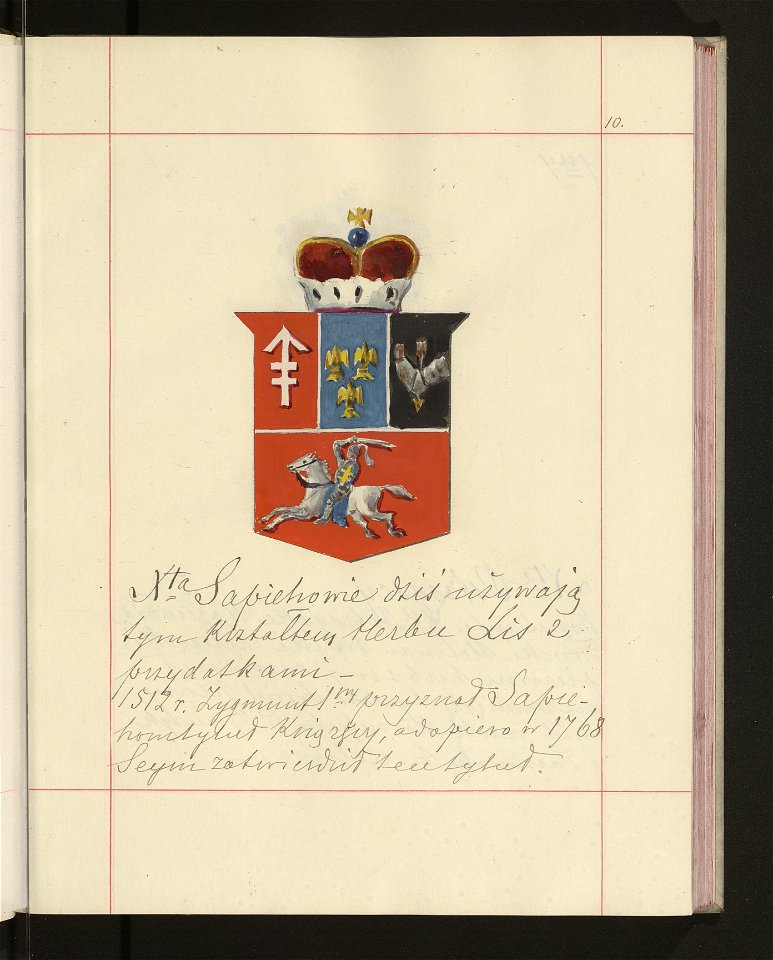 10.
Xta Sapiehowie dziś używają
tym kształtem Herbu Lis z
przydatkami –
1512 r. Zygmunt 1ny przyznał Sapie-
hom tytuł Książęcy, a dopiero w 1768
Seym zatwierdził ten tytuł.